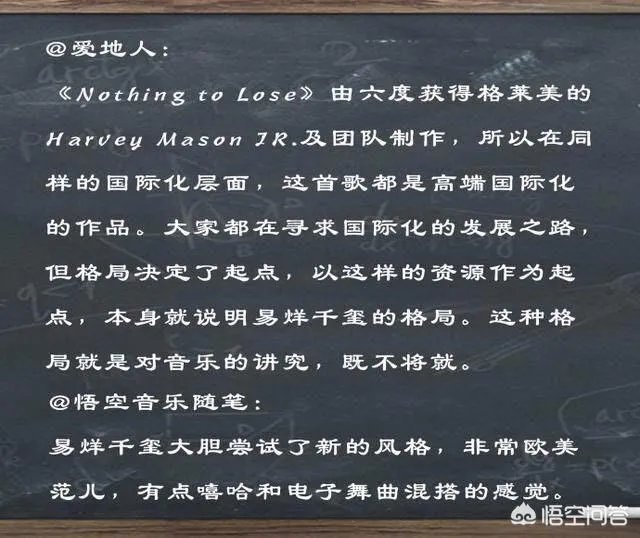 @爱地人：
《Nothing to Lose》由六度获得格莱美的
Harvey Mason JR.及团队制作，所以在同
样的国际化层面，这首歌都是高端国际化
的作品。大家都在寻求国际化的发展之路，
但格局决定了起点，以这样的资源作为起
点，本身就说明易烊千玺的格局。这种格
局就是对音乐的讲究，既不将就。
@悟空音乐随笔：
易烊千玺大胆尝试了新的风格，非常欧美
范儿，有点嘻哈和电子舞曲混搭的感觉。
悟空问答